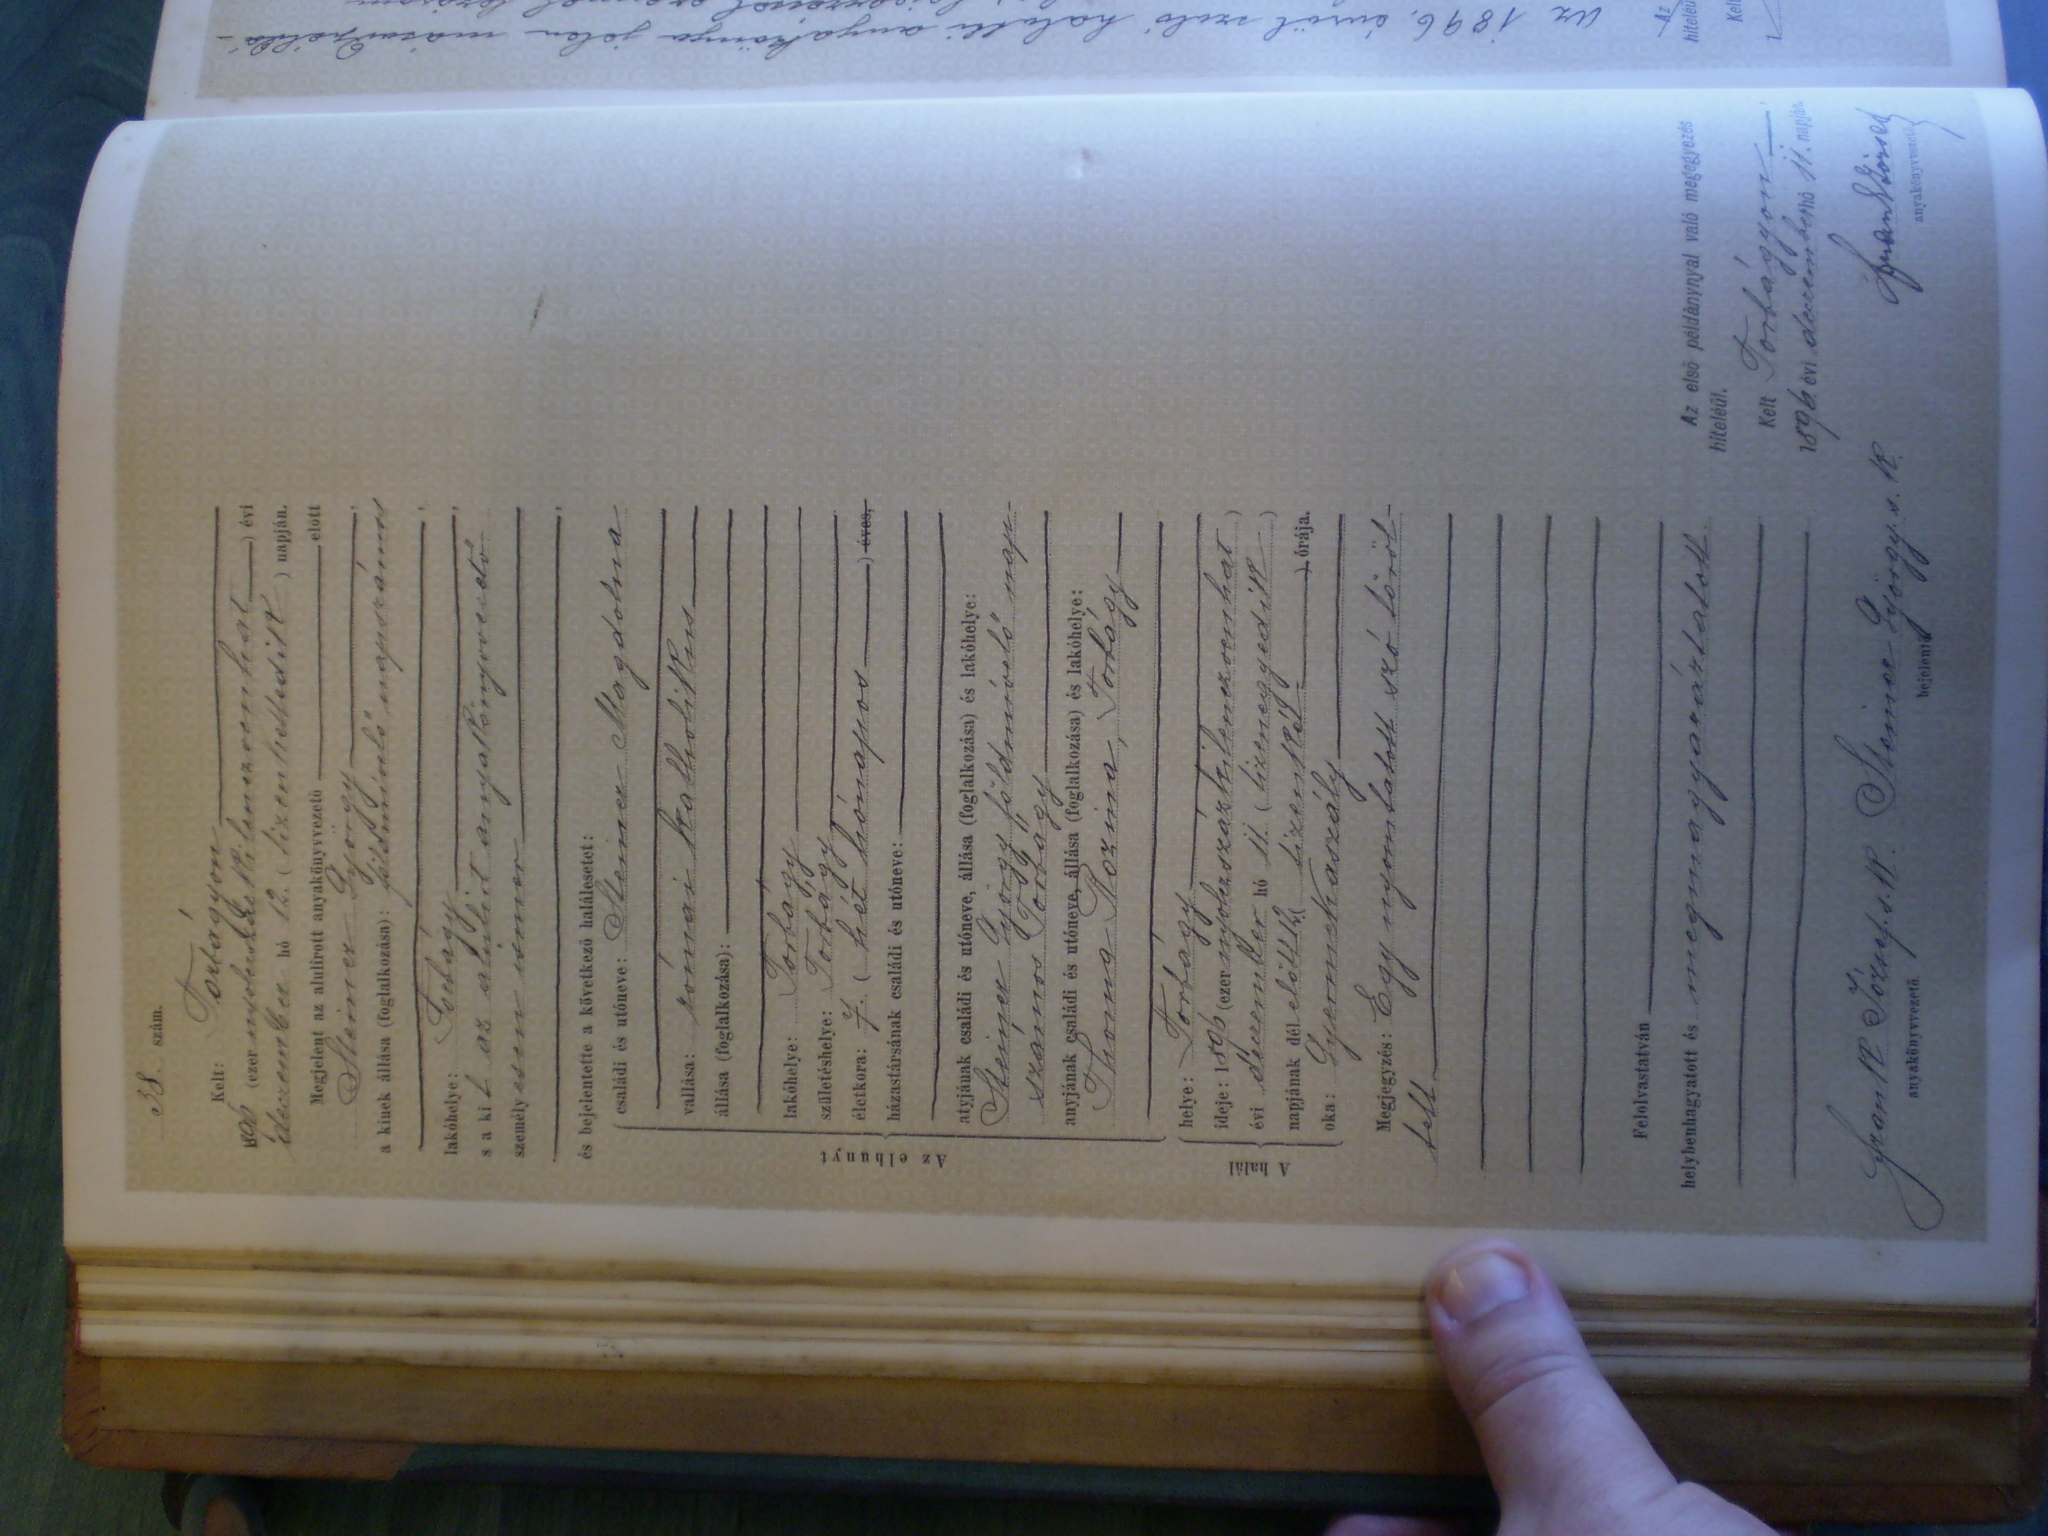 38. szám.
Kelt: Torbágyon
1896 (ezer nyolczszázkilenczvenhat) évi
december hó 12. (tizenkettedik) napján.
Megjelent az alulirott anyakönyvezető előtt
Steiner György,
a kinek állása (foglalkozása): földmívelő napszámos
lakóhelye: Torbágy,
s a kit az alulirt anyakönyvvezető
személyesen ismer,
és bejelentette a következő halálesetet:
Az elhunyt
családi és utóneve: Steiner Magdolna
vallása: római katholikus
állása (foglalkozása):
lakóhelye: Torbágy
születéshelye: Torbágy
életkora: 7. (hét hónapos) éves,
házastársának családi és utóneve:
atyjának családi és utóneve, állása (foglalkozása) és lakóhelye:
Steiner György földmívelő nap-
számos Torbágy
anyjának családi és utóneve, állása (foglalkozása) és lakóhelye:
Thoma Rozina, Torbágy
A halál
helye: Torbágy
ideje: 1896 (ezer nyolczszázkilenczvenhat)
évi december hó 11. (tizenegyedik)
napjának dél előtt 12 ( tizenkét ) órája.
oka: Gyermekaszály
Megjegyzés: Egy nyomtatott szó töröl-
tett
Felolvastatván
helybenhagyatott és megmagyaráztatott.
József s. k.
anyakönyvezető
Steiner György s. k.
bejelentő
Az első példánynyal való megegyezés
hiteléül.
Kelt Torbágyon
1896 évi december hó 11. napján.
József
anyakönyvvezető
Az 1896. évről szóló halotti anyakönyv jelen másodpéldá-
Az
hiteléül
Kelt